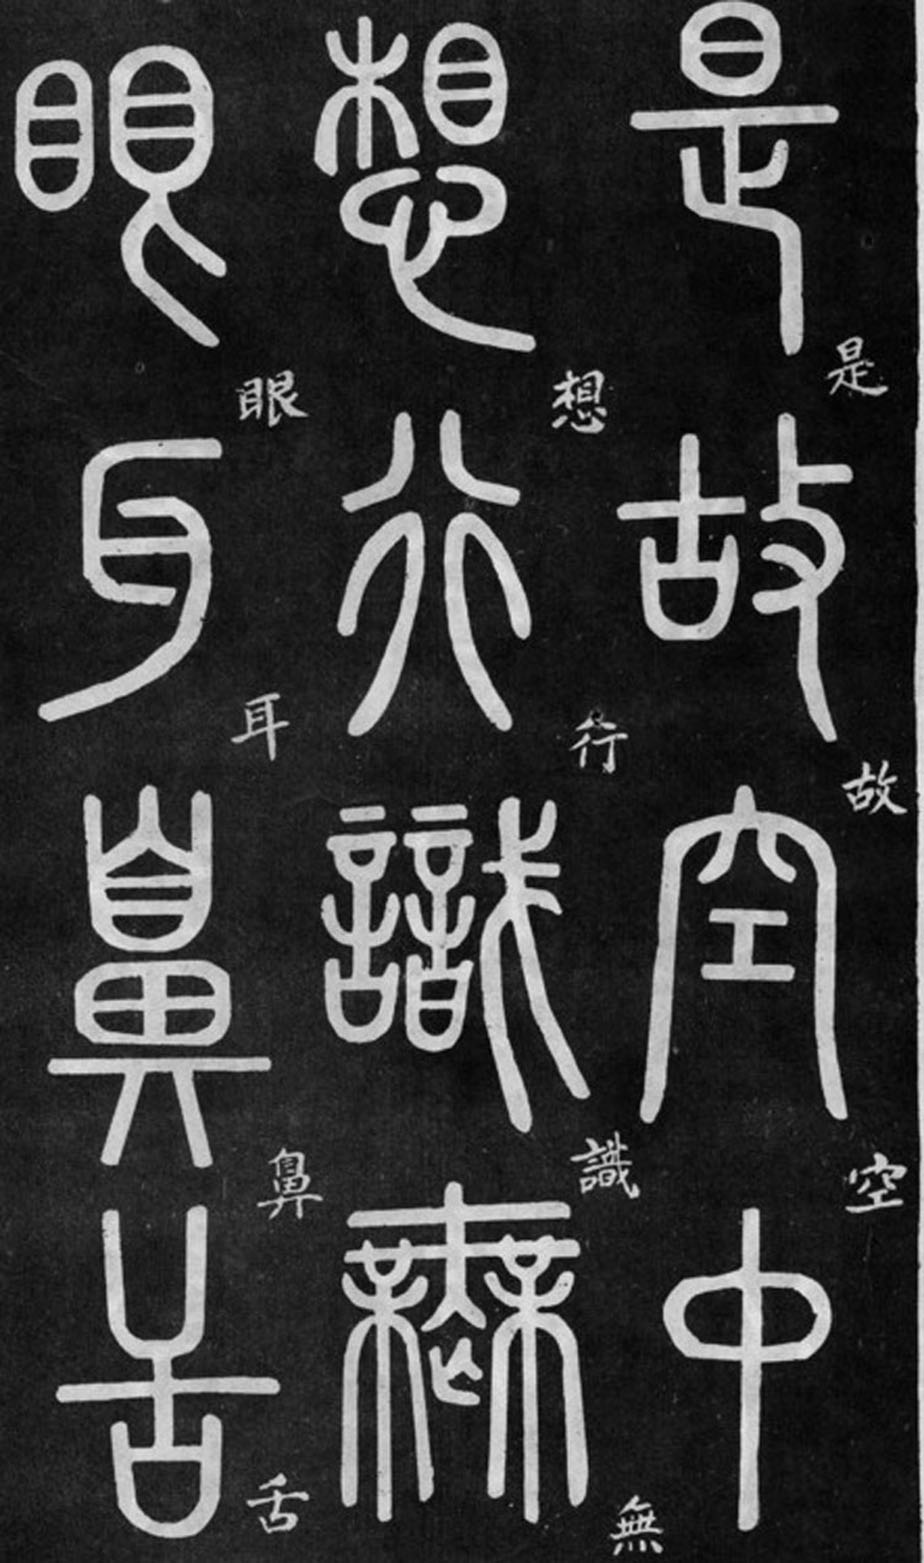 是故空中
是故空
想行識無
想行識無
眼耳鼻舌
眼耳鼻舌